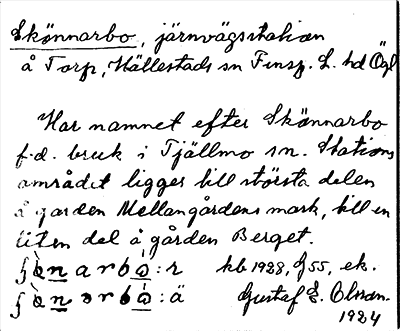 Skönnarbo, järnvägsstation
å Torp, Hällestads sn Finsp. L. hd Ögl
Har namnet efter Skönnarbo
f.d. bruk i Tjällmo sn. Stations
området ligger till största delen
å gården Mellangårdens mark, till en
liten del å gården Berget.
kb 1928, G 55, ek.
Gustaf E. Olsson.
1924